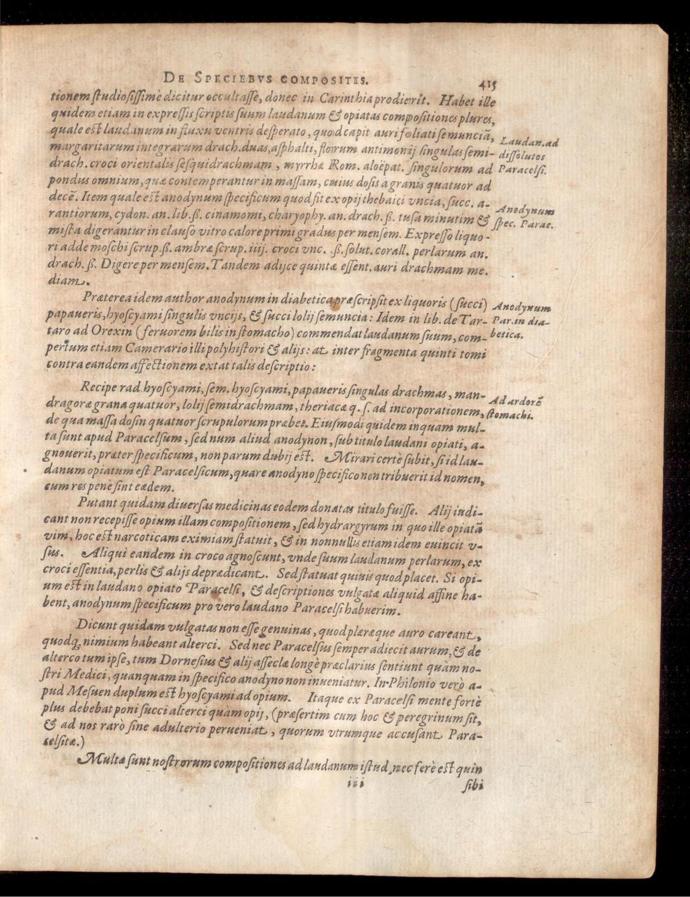 DE SPECIEBVS COMPOSITIS. 415
tionem studiosissimè dicitur occultasse, donec in Carinthia prodierit. Habet ille
quidem etiam in expressis scriptis suum laudanum & opiatas compositiones plures,
quale est laudanum in fluxu ventris desperato, quod capit auri foliati semunciã,
Laudan. ad
margaritarum integrarum drach. duas, asphalti, florum antimonij singulas semi-
dissolutos
drach. croci orientalis sesquidrachmam, myrrhæ Rom. aloëpat. singulorum ad
Paracelsi.
pondus omnium, quæ contemperantur in massam, cuius dosis a granis quatuor ad
decẽ. Item quale est anodynum specificum quod sit ex opij thebaici vncia, succ. a-
Anodynum
rantiorum, cydon. an. lib. ß. cinamomi, charyophy. an. drach. ß. tusa minutim &
spec. Parac.
mista digerantur in clauso vitro calore primi gradus per mensem. Expresso liquo-
ri adde moschi scrup. ß. ambræ scrup. iiij. croci vnc. ß. solut. corall. perlarum an.
drach. ß. Digere per mensem. Tandem adijce quintæ essent. auri drachmam me-
diam.
Præterea idem author anodynum in diabetica præscripsit ex liquoris (succi)
Anodynum
papaueris, hyoscyami singulis vncijs, & succi lolij semuncia: Idem in lib. de Tar-
Par. in dia-
taro ad Orexin (feruorem bilis in stomacho) commendat laudanum suum, com-
betica.
pertum etiam Camerario illi polyhistori & alijs: at inter fragmenta quinti tomi
contra eandem affectionem extat talis descriptio:
Recipe rad hyoscyami, sem. hyoscyami, papaueris singulas drachmas, man-
Ad ardorẽ
dragoræ grana quatuor, lolij semidrachmam, theriacæ q. s. ad incorporationem,
stomachi.
de qua massa dosin quatuor scrupulorum præbet. Eiusmodi quidem inquam mul-
ta sunt apud Paracelsum, sed num aliud anodynon, sub titulo laudani opiati, a-
gnouerit, præter specificum, non parum dubij est. Mirari certè subit, si id lau-
danum opiatum est Paracelsicum, quare anodyno specifico non tribuerit id nomen,
cum res pene sint eædem.
Putant quidam diuersas medicinas eodem donatas titulo fuisse. Alij indi-
cant non recepisse opium illam compositionem, sed hydrargyrum in quo ille opiatã
vim, hoc est narcoticam eximiam statuit, & in nonnullis etiam idem euincit v-
sus. Aliqui eandem in croco agnoscunt, vnde suum laudanum perlarum, ex
croci essentia, perlis & alijs deprædicant. Sed statuat quiuis quod placet. Si opi-
um est in laudano opiato Paracelsi, & descriptiones vulgatæ aliquid affine ha-
bent, anodynum specificum pro vero laudano Paracelsi habuerim.
Dicunt quidam vulgatas non esse genuinas, quod pleræque auro careant,
quodq́, nimium habeant alterci. Sed nec Paracelsus semper adiecit aurum, & de
alterco tum ipse, tum Dornesius & alij asseclæ longè præclarius sentiunt quam no-
stri Medici, quanquam in specifico anodyno non inueniatur. In Philonio verò a-
pud Mesuen duplum est hyoscyami ad opium. Itaque ex Paracelsi mente fortè
plus debebat poni succi alterci quam opij, (præsertim cum hoc & peregrinum sit,
& ad nos rarò sine adulterio perueniat, quorum vtrumque accusant Para-
celsitæ.)
Multæ sunt nostrorum compositiones ad laudanum istud, nec ferè est quin
iii sibi